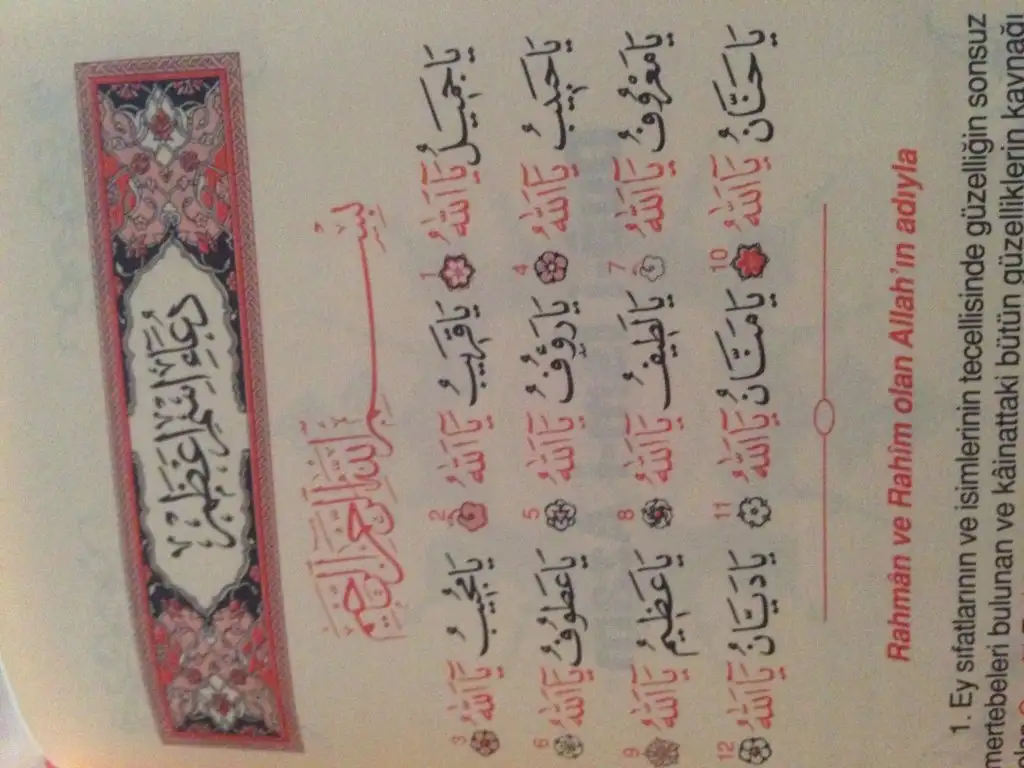 دُعَاءِ اِسْمِ اَعْظَمْ
بِسْمِ اللّٰهِ الرَّحْمٰنِ الرَّحِيمِ
يَا جَمِيلُ يَٓا اَللّٰهُ 1 يَا قَرِيبُ يَٓا اَللّٰهُ 2 يَا مُجِيبُ يَٓا اَللّٰهُ 3
يَا حَبِيبُ يَٓا اَللّٰهُ 4 يَا رَؤُفُ يَٓا اَللّٰهُ 5 يَا عَطُوفُ يَٓا اَللّٰهُ 6
يَا مَعْرُوفُ يَٓا اَللّٰهُ 7 يَا لَطِيفُ يَٓا اَللّٰهُ 8 يَا عَظِيمُ يَٓا اَللّٰهُ 9
يَا حَنَّانُ يَٓا اَللّٰهُ 10 يَا مَنَّانُ يَٓا اَللّٰهُ 11 يَا دَيَّانُ يَٓا اَللّٰهُ 12
Rahmân ve Rahîm olan Allah'ın adıyla
1. Ey sıfatlarının ve isimlerinin tecellisinde güzelliğin sonsuz
mertebeleri bulunan ve kâinattaki bütün güzelliklerin kaynağı